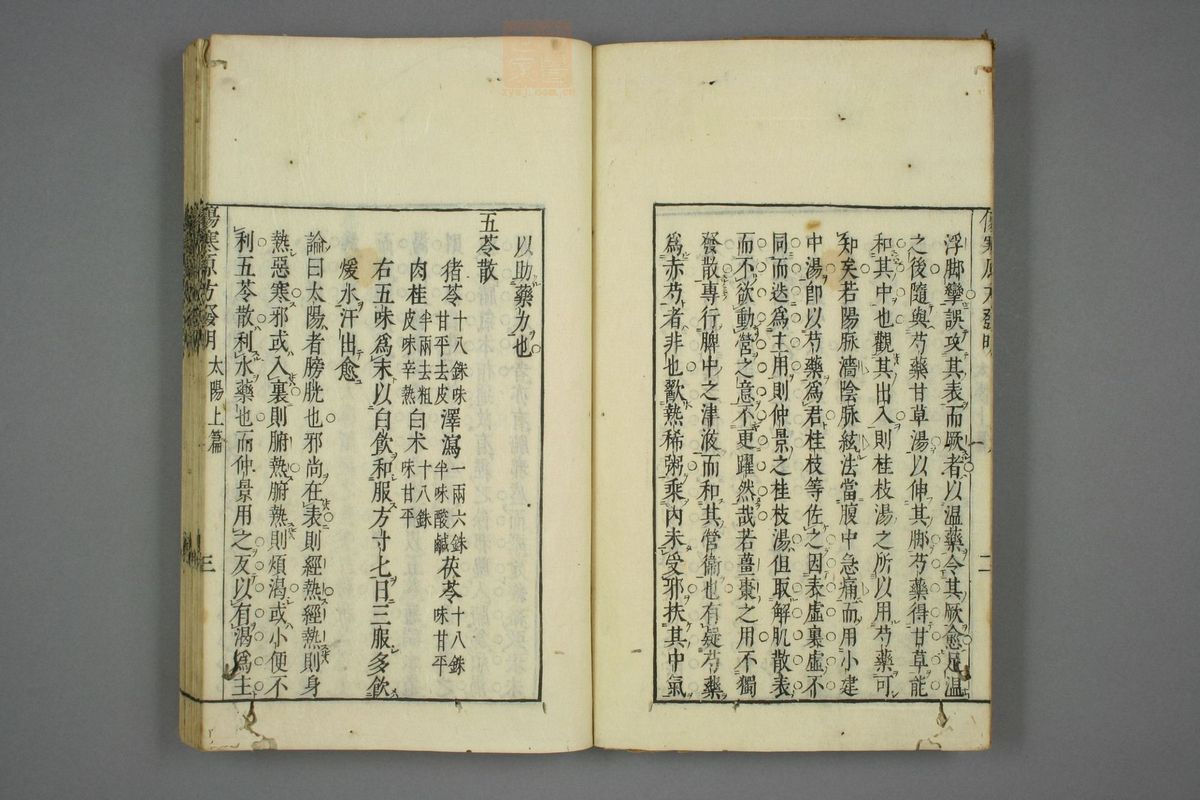 浮脚攣誤攻其表而厥者以溫藥令其厥愈足溫
之後隨與芍藥甘草湯以伸其脚芍藥得甘草能
和其中也觀其出入則桂枝湯之所以用芍藥可
知矣若陽脉濇陰脉絃法當腹中急痛而用小建
中湯卽以芍藥爲君桂枝等佐之因表虛裏虛不
同而迭爲主用則仲景之桂枝湯但取解肌散表
而不欲動營之意不更躍然哉若薑棗之用不獨
發散專行脾中之津液而和其營衞也有疑芍藥
爲赤芍者非也歠熱稀粥乘內未受邪扶其中氣
二
以助藥力也
五苓散
猪苓十八銖味甘平去皮 澤瀉一兩六銖半味酸鹹 茯苓十八銖味甘平
肉桂半兩去粗皮味辛熱 白朮十八銖味甘平
右五味爲末以白飮和服方寸匕日三服多飮
煖水汗出愈
論曰太陽者膀胱也邪尚在表則經熱經熱則身
熱惡寒邪或入裏則腑熱腑熱則煩渴或小便不
利五苓散利水藥也而仲景用之反以有渴爲主
傷寒原方發明 太陽上篇 三